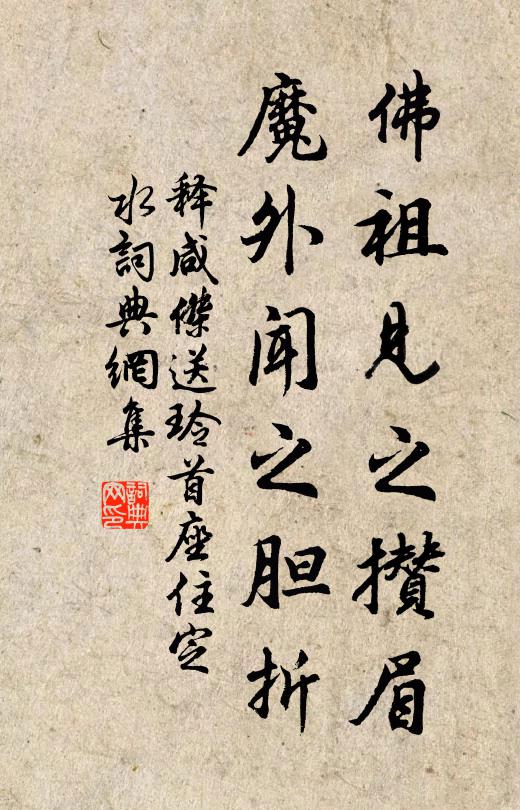 佛祖見之攢眉
魔外闻之胆折
释咸傑送玲首座住定
水詞典網集
詞典
网印